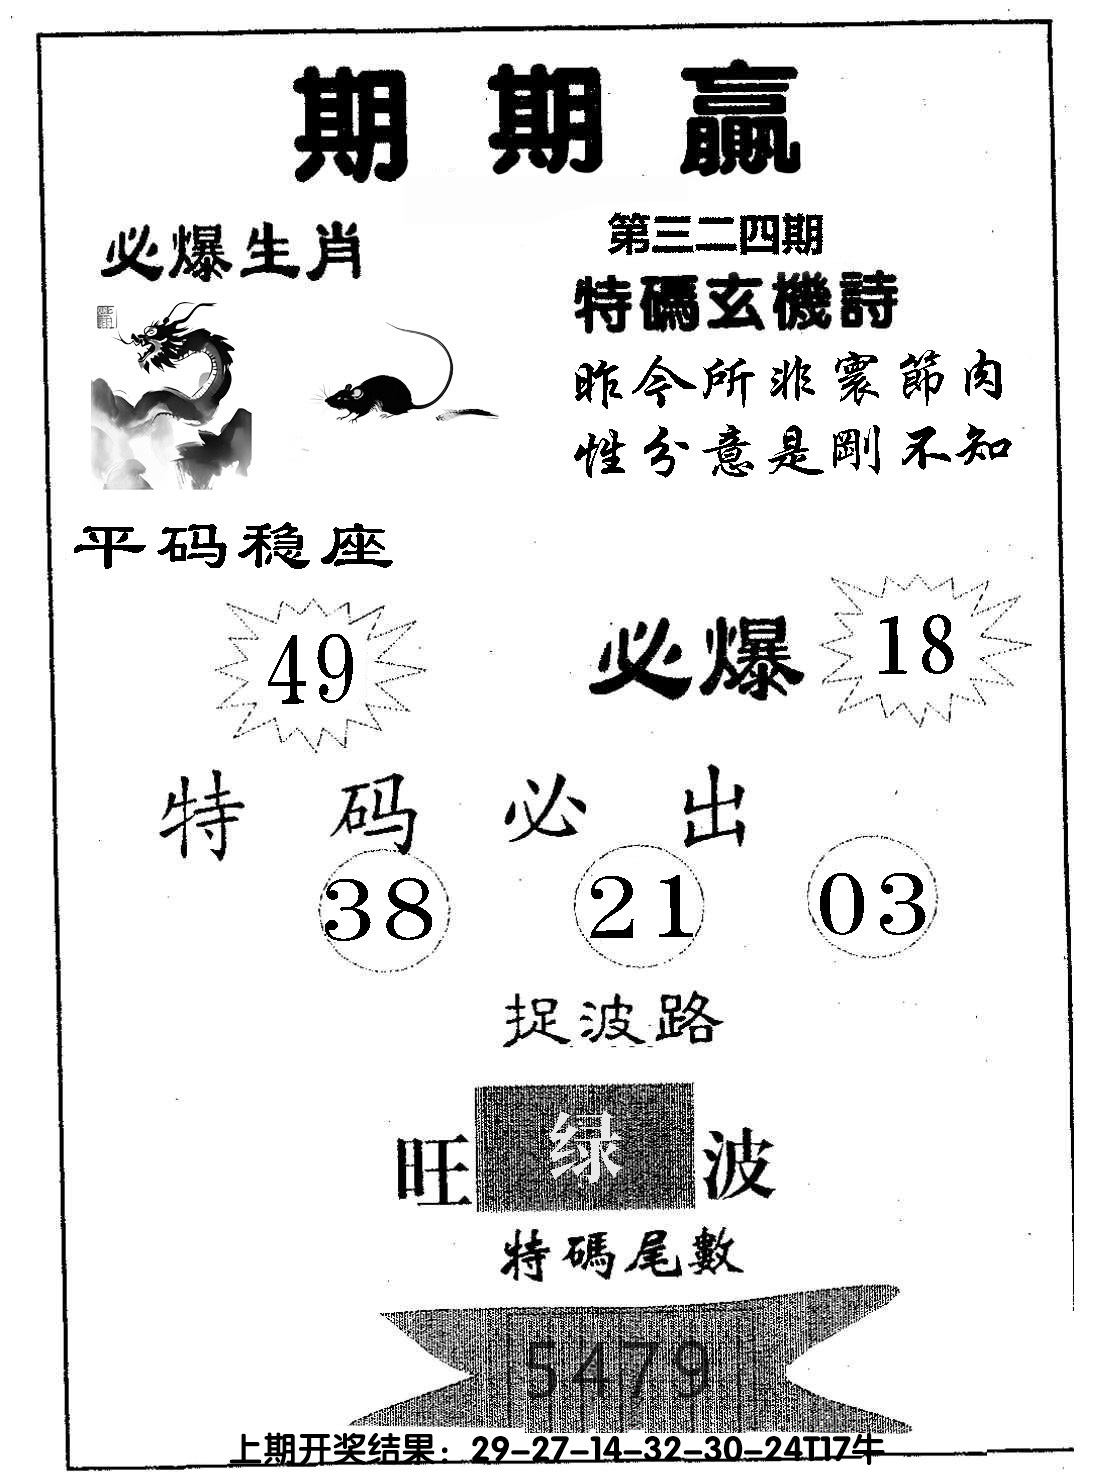 期期贏
必爆生肖
第三二四期
特碼玄機詩
昨今所非寰節肉
性分意是剛不知
平码稳座
49
必爆
18
特码必出
38 21 03
捉波路
旺绿波
特碼尾數
5479
上期开奖结果：29-27-14-32-30-24T17牛